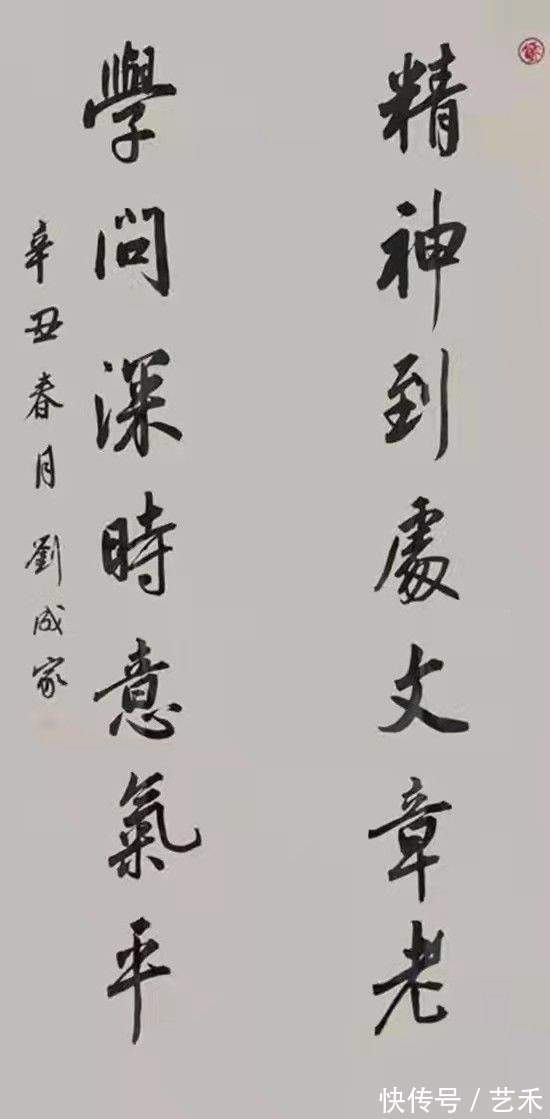 精神到處文章老
學問深時意氣平
辛丑春月劉成家
快传号/艺禾